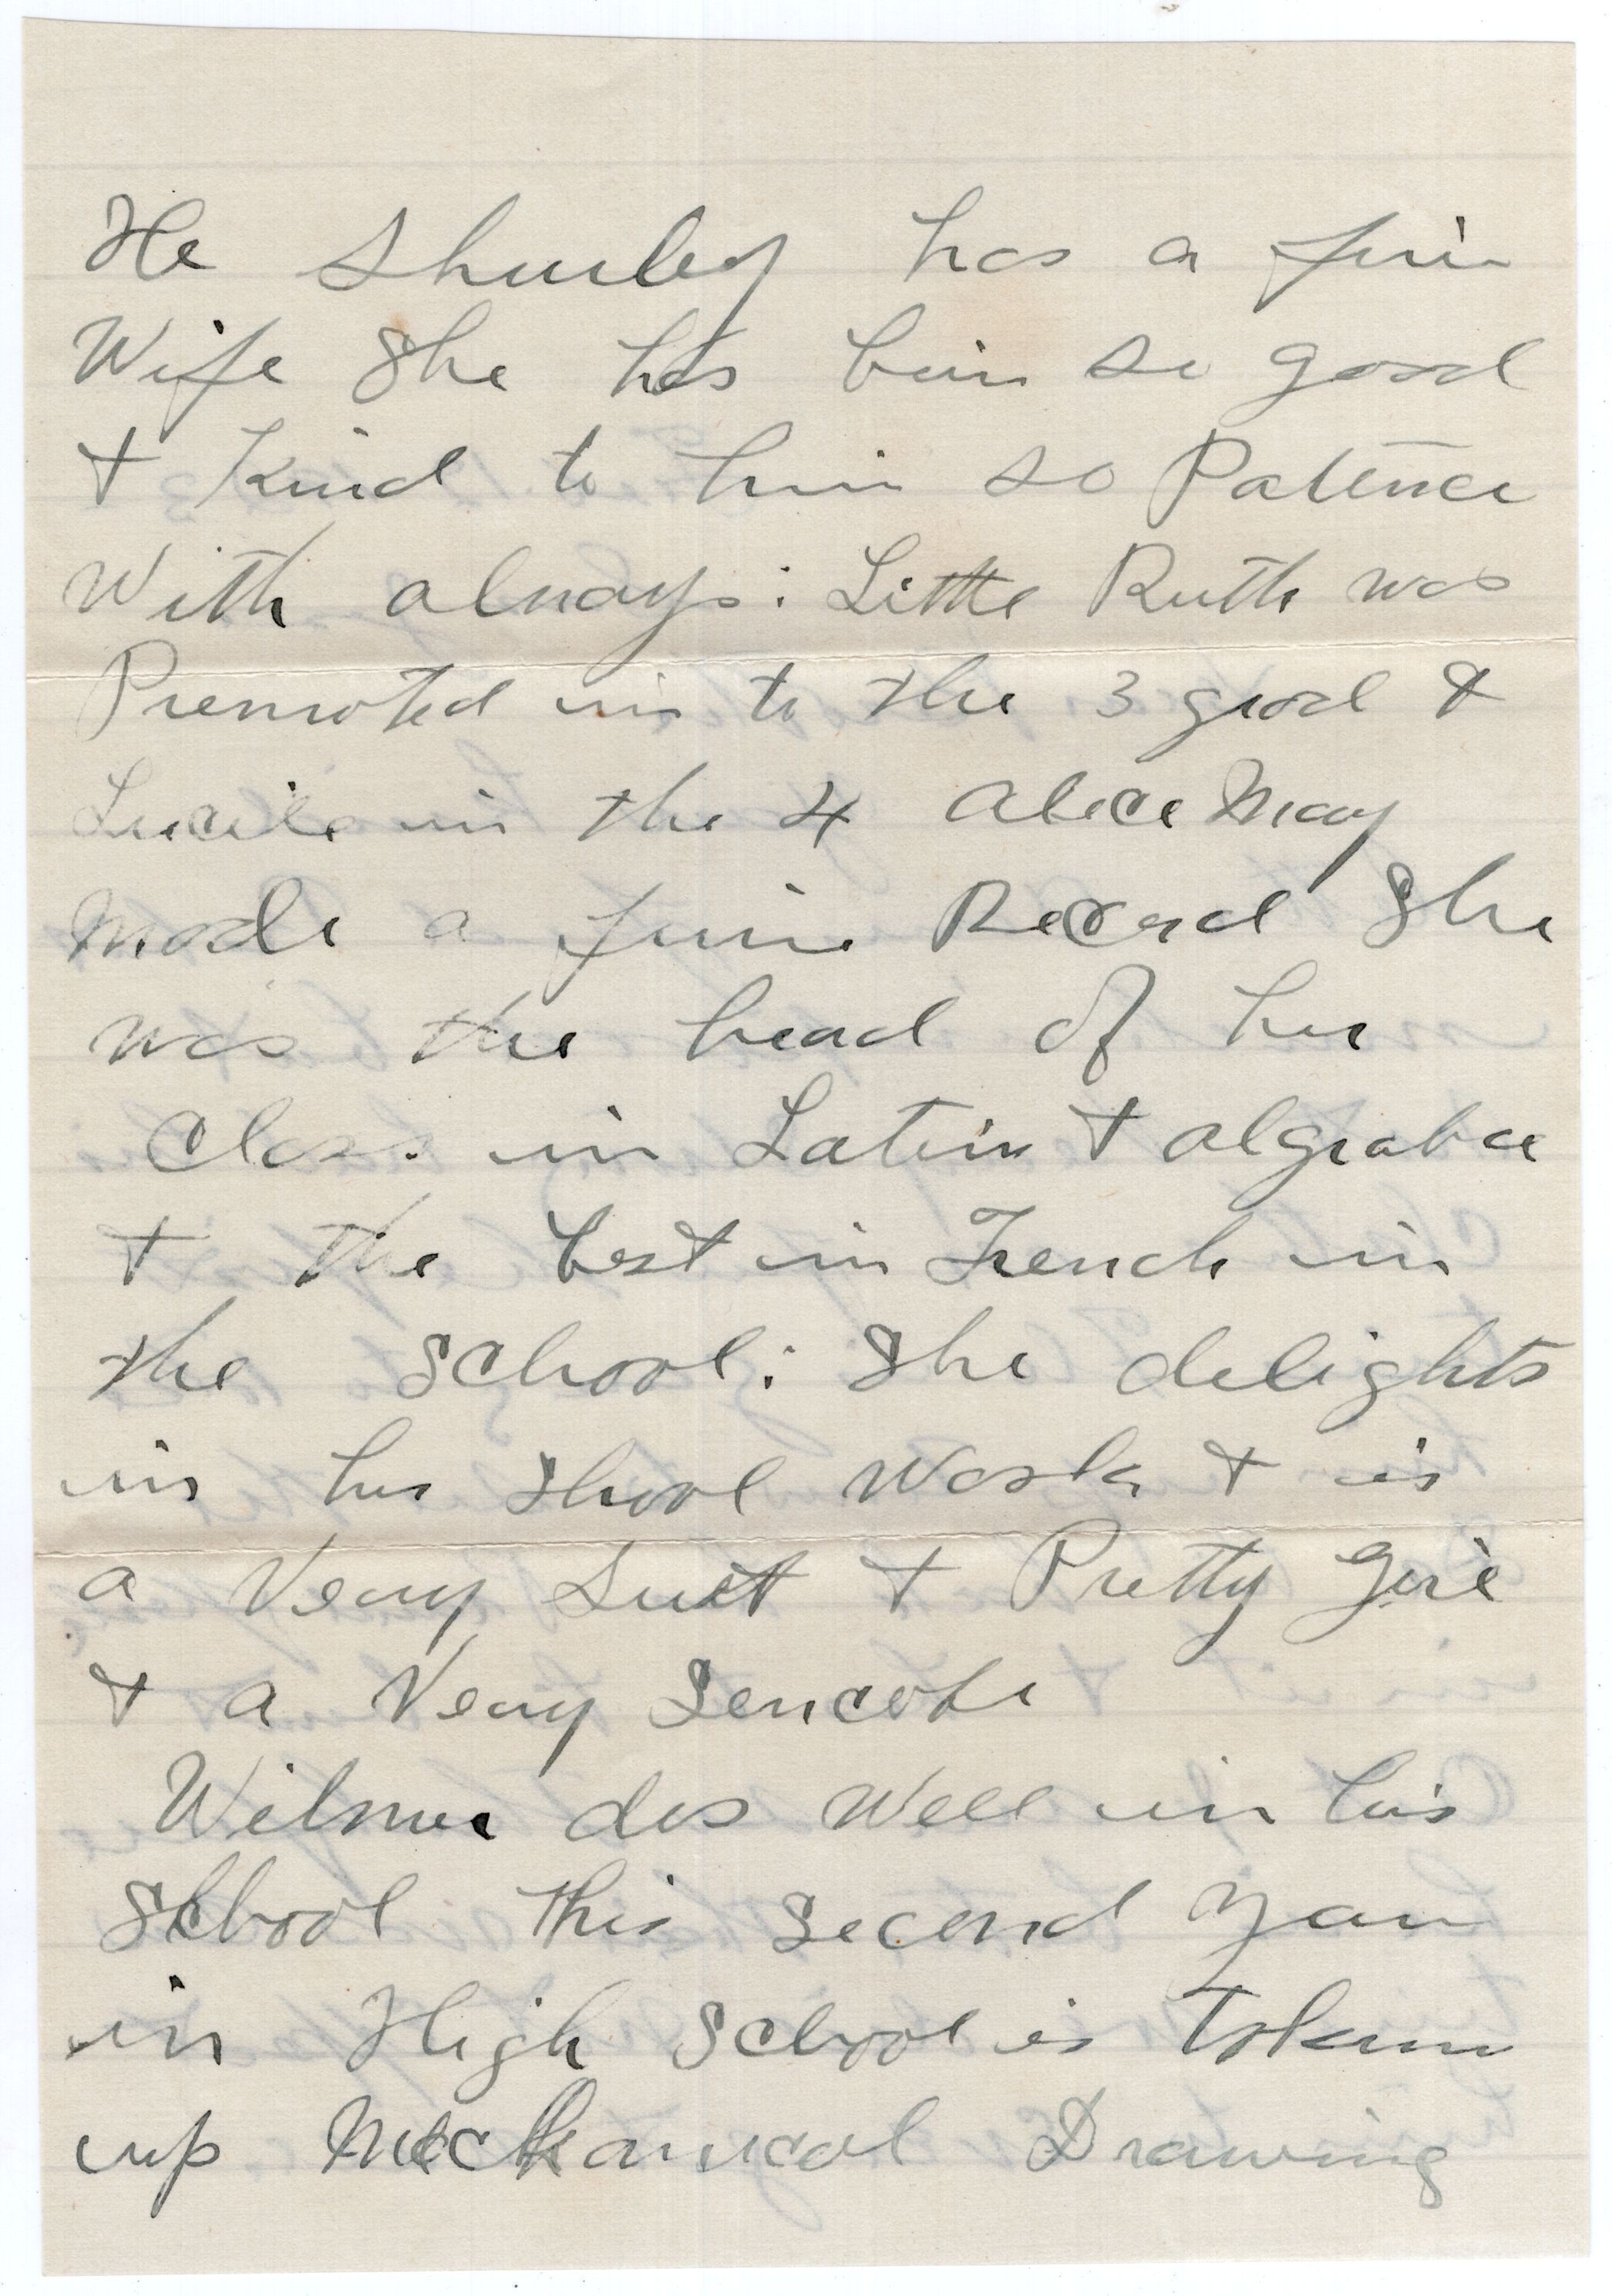 He Shurley has a fine
Wife She has bin so good
& Kind to him so Patence
With always: Little Ruth was
Premoted in to the 3 grad &
Lucile in the 4 Alice May
Made a fine Record She
was the head of her
Class in Latin & algrabra
& the best in French in
the School: She delights
in her Shool Work & is
a Very Swet & Pretty Girl
& a Very
Wilmer dos Well in his
School this Second Year
in High School is taken
up Mechanical Drawing